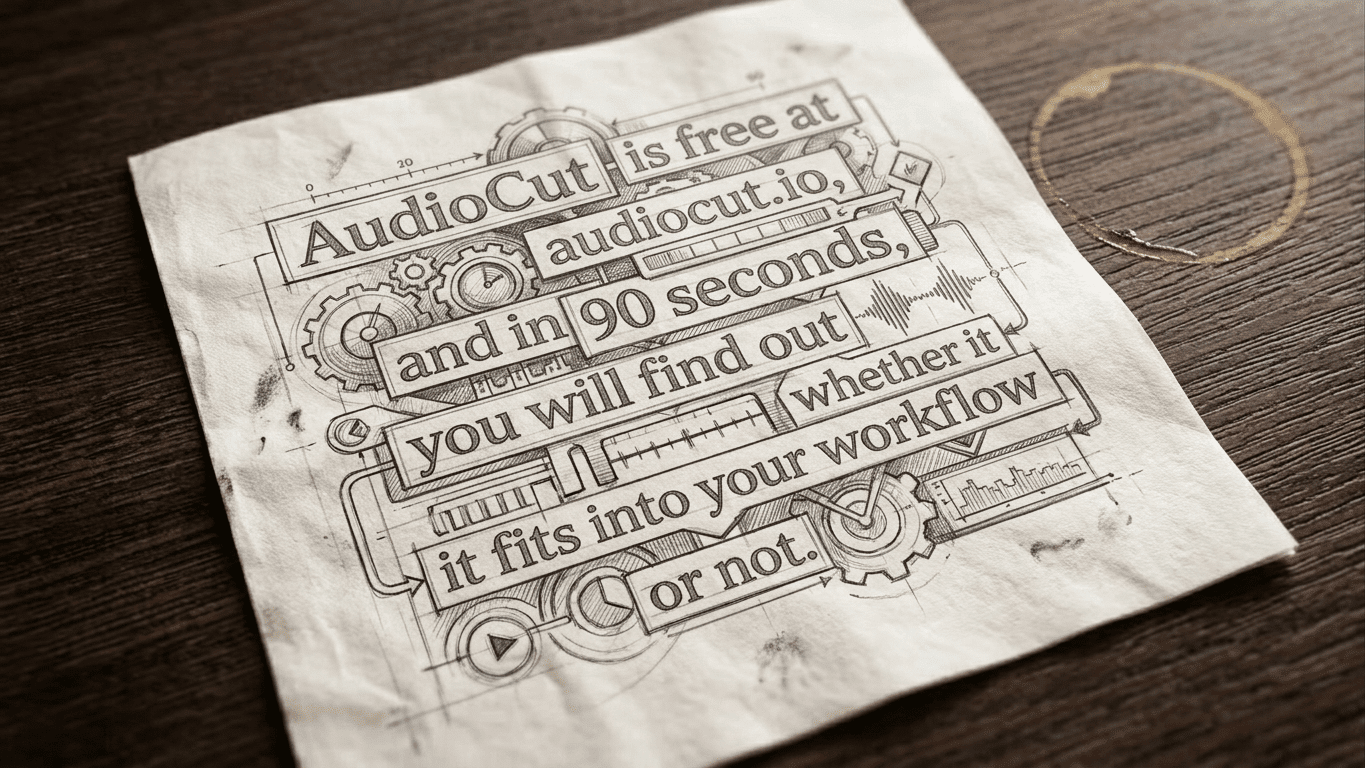 AudioCut is free at
audiocut.io,
and in 90 seconds,
you will find out
whether it
it fits into your workflow
or not.
0
20
60